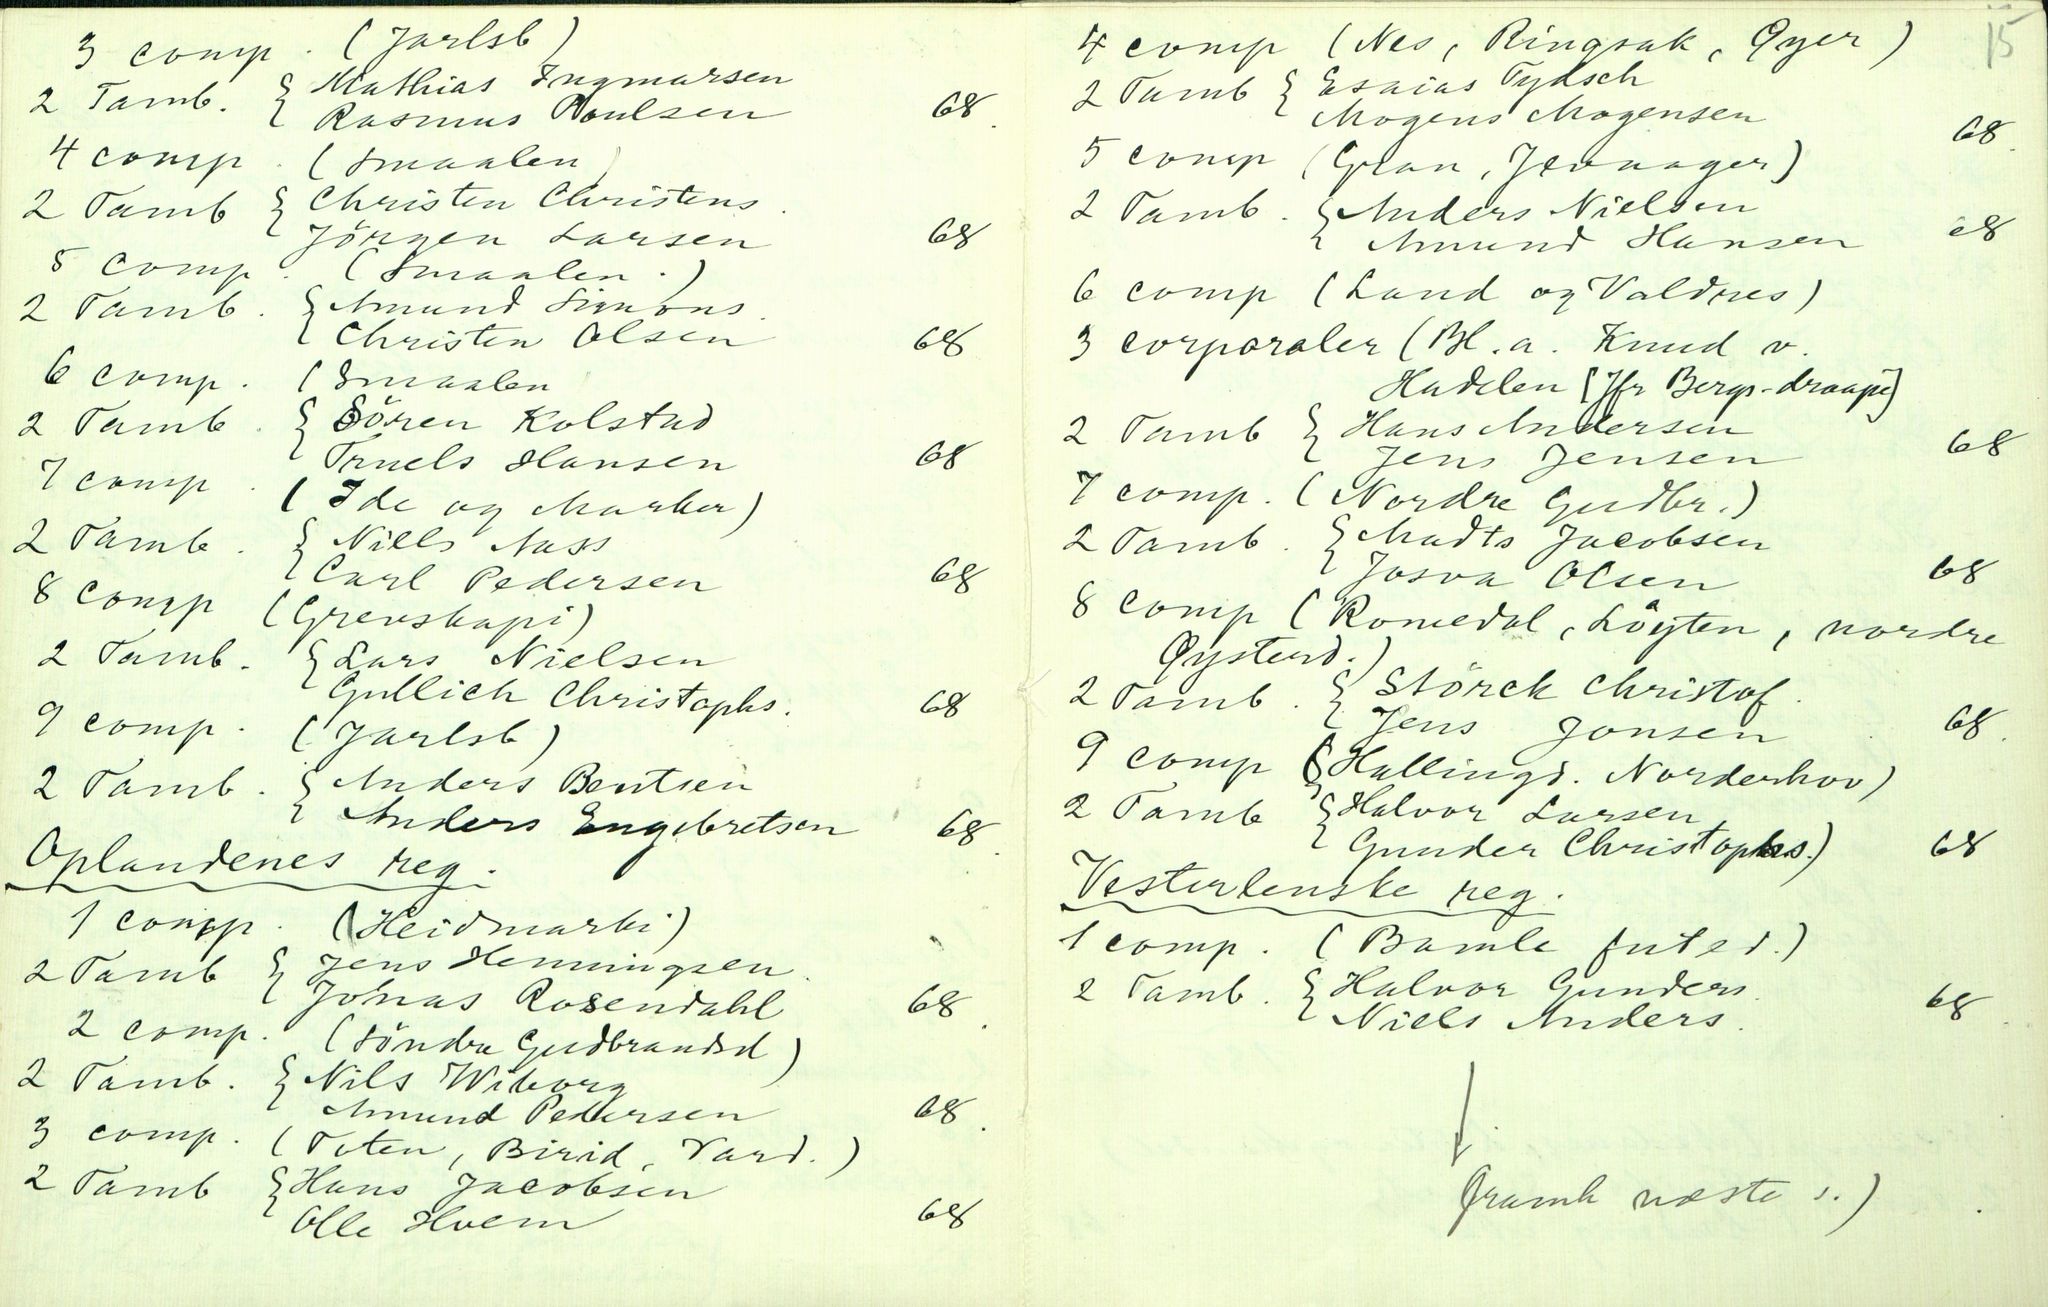 3 comp. (Jarlsb)
2 Tamb. { Mathias Ingmarsen
Rasmus Poulsen 68.
4 comp. (Smaalen)
2 Tamb { Christen Christens.
Jörgen Larsen 68
5 comp. (Smaalen.)
2 Tamb. { Amund Simons.
Christen Olsen 68
6 comp. (Smaalen
2 Tamb. { Sören Kolstad
Truels Hansen 68
7 comp. (Ide og Marker)
2 Tamb. { Niels Nass
Carl Pedersen 68
8 comp (Grevskapi)
2 Tamb. { Lars Nielsen
Gullich Christophs. 68
9 comp. (Jarlsb)
2 Tamb. { Anders Bentsen
Anders Engebretsen 68.
Oplandenes reg.
1 comp. (Heidmarki)
2 Tamb { Jens Henningsen.
Jonas Rosendahl 68.
2 comp. (Söndre Gudbrandsd)
2 Tamb. { Nils Wiborg
Amund Pedersen 68.
3 comp. (Toten, Birid, Vard.)
2 Tamb { Hans Jacobsen
Olle Hvem 68
15
4 comp (Nes, Ringsak, Öyer)
2 Tamb { Esaias Tydsch
Mogens Mogensen 68.
5 comp (Gran, Jevnager)
2 Tamb. { Anders Nielsen
Amund Hansen 68
6 comp (Land og Valdres)
3 corporaler (Bl.a. Knud v.
Hadelen [Jfr Bergs-draape]
2 Tamb { Hans Andersen
Jens Jensen 68
7 comp. (Nordre Gudbr.)
2 Tamb. { Madts Jacobsen
Josva Olsen 68
8 comp (Romedal, Löyten, nordre
Öysterd.)
2 Tamb. { Störck Christof.
Jens Jonsen 68.
9 comp (Hallingd. Norderhov)
2 Tamb { Halvor Larsen
Gunder Christophs.) 68
Vesterlenske reg.
1 comp. (Bamle futed.)
2 Tamb. { Halvor Gunders.
Niels Anders. 68.
(framh næste s.)